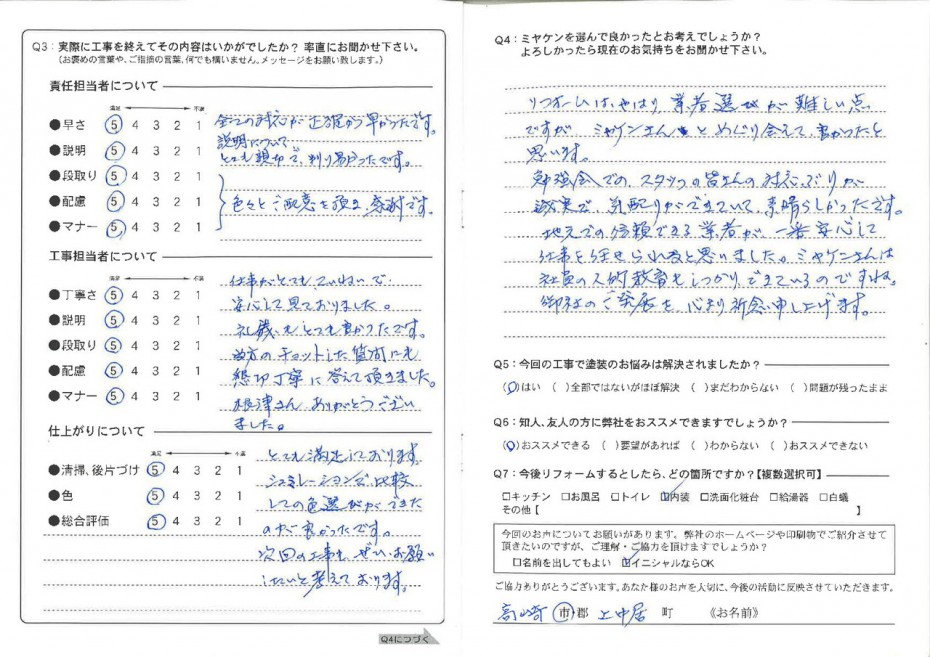 Q3：実際に工事を終えてその内容はいかがでしたか？ 率直にお聞かせ下さい。
（お褒めの言葉や、ご指摘の言葉、何でも構いません。メッセージをお願い致します。）
責任担当者について
満足 不満
●早さ 5 4 3 2 1
全ての対応が正確かつ早かったです。
●説明 5 4 3 2 1
説明について
とても親切で、判り易かったです。
●段取り 5 4 3 2 1
●配慮 5 4 3 2 1
色々とご配慮を頂き、感謝です。
●マナー 5 4 3 2 1
工事担当者について
満足 不満
●丁寧さ 5 4 3 2 1
●説明 5 4 3 2 1
●段取り 5 4 3 2 1
●配慮 5 4 3 2 1
●マナー 5 4 3 2 1
仕事がとてもていねいで
安心して見ておりました。
礼儀もとても良かったです。
当方のチョットした質問にも
懇切丁寧に答えて頂きました。
根津さん ありがとうござい
ました。
仕上がりについて
満足 不満
●清掃、後片づけ 5 4 3 2 1
●色 5 4 3 2 1
●総合評価 5 4 3 2 1
とても満足しております。
シュミレーションで比較
しての色選びができた
のが良かったです。
次回の工事も、ぜひ、お願い
したいと考えております。
Q4につづく
Q4：ミヤケンを選んで良かったとお考えでしょうか？
よろしかったら現在のお気持ちをお聞かせ下さい。
リフォームは、やはり業者選びが難しい点
ですが ミヤケンさんとめぐり会えて、良かったと
思います。
勉強会での、スタッフの皆さんの対応ぶりが
誠実で、気配りができていて、素晴らしかったです。
地元での信頼できる業者が、一番安心して
仕事を任せられると思いました。ミヤケンさんは
社員の人的教育もしっかりできているのですね。
御社のご発展を、心より祈念申し上げます。
Q5：今回の工事で塗装のお悩みは解決されましたか？
（○）はい （ ）全部ではないがほぼ解決 （ ）まだわからない （ ）問題が残ったまま
Q6：知人、友人の方に弊社をおススメできますでしょうか？
（○）おススメできる （ ）要望があれば （ ）わからない （ ）おススメできない
Q7：今後リフォームするとしたら、どの箇所ですか？【複数選択可】
□キッチン □お風呂 □トイレ ☑内装 □洗面化粧台 □給湯器 □白蟻
その他【 】
今回のお声についてお願いがあります。弊社のホームページや印刷物でご紹介させて
頂きたいのですが、ご理解・ご協力を頂けますでしょうか？
□名前を出してもよい ☑イニシャルならOK
ご協力ありがとうございます。あなた様のお声を大切に、今後の活動に反映させていただきます。
高崎 市・郡 上中居 町 《お名前》